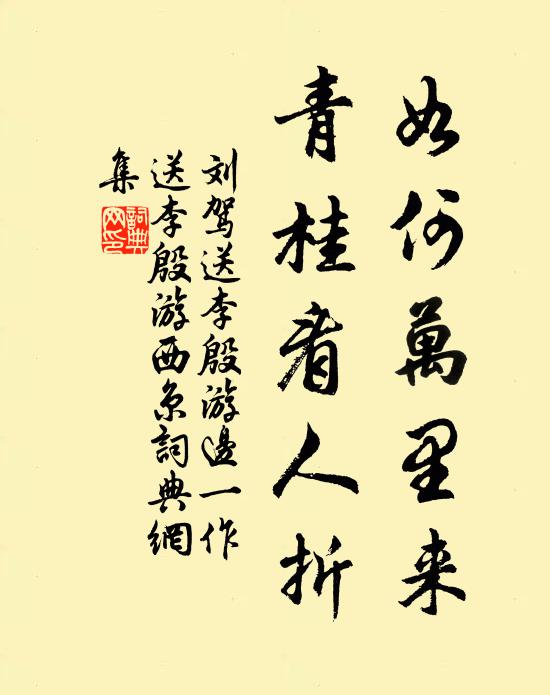 如何萬里来
青桂看人折
刘驾送李殷游邊一作
送李殷游西京詞典網
集
詞典网印